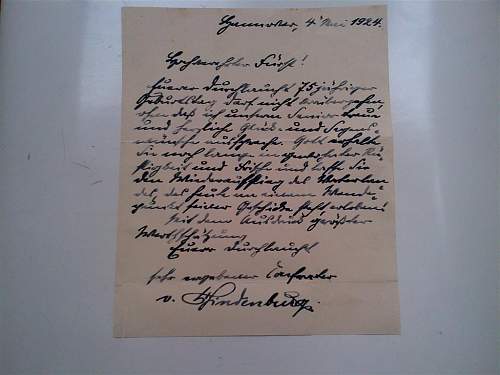 Hannover, 4 Mai 1924.
Hochverehrter Fürst!
Euerer Durchlaucht 75 jähriger
Geburtstag darf nicht vorübergehen,
ohne daß ich unserm Senior treue
und herzliche Glück- und Segens-
wünsche ausspreche. Gott erhalte
Sie noch lange in gewohnter Rüs-
tigkeit und Frische und lasse Sie
den Wiederaufstieg des Vaterlan-
des, das heute an einem Wende-
punkt seiner Geschicke steht, erleben!
Mit dem Ausdruck größter
Wertschätzung
Euer Durchlaucht
sehr ergebener
v. Hindenburg.